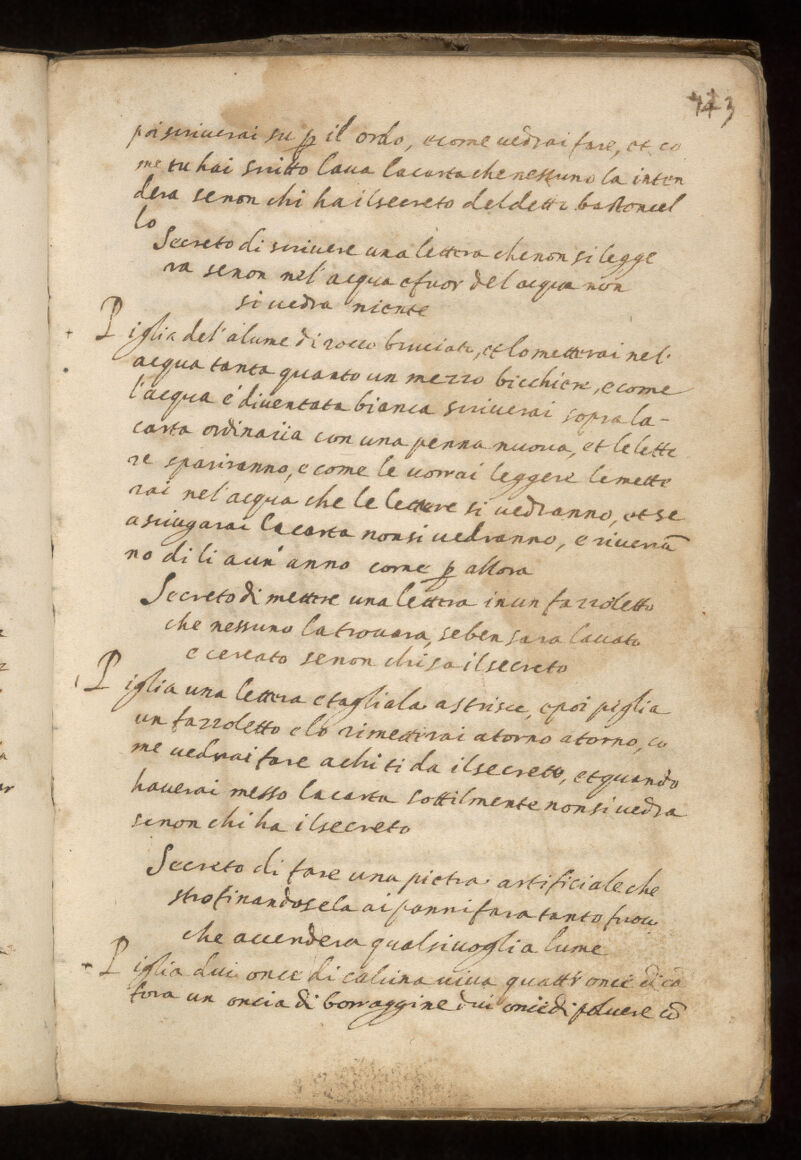 143
poi scriverai su p il ordo, e come vedrai fare, et co
me tu hai scritto lava la carta che nessuno la inten
dera se non chi ha il secreto del detto bastoncel
lo
Secreto di scrivere una lettera che non si legge
ra se non nel'acqua e fuor del acqua non
si vedra niente
Piglia del'alume di rocco bruciato, et lo metterai nel'
acqua tanta quanto un mezzo bicchiere, e come
l'acqua è diventata bianca scriverai sopra la-
carta ordinariia con una penna nuova, et le lette
re spariranno, e come le vorrai leggere le mette
rai nel'acqua che le lettere si vedranno, et se
asciugarai la carta non si vedranno, e riverrā
no di li a un'anno come p allora
Secreto di mettere una lettera in un fazzoletto
che nessuno la trovara, se ben sara lavato
e cercato se non chi sa il secreto
Piglia una lettera e tagliala a strisce, e poi piglia
un fazzoletto e lo rimetterai atorno atorno, co
me vedrai fare a chi ti da il secreto, et quando
haverai messo la carta sottilmente non si vedra
se non chi ha il secreto
Secreto di fare una pietra artificiale che
strofinandosela ai panni fara tanto fuoco
che accendera qual si voglia lume
Piglia dui once di calcina viva quattr'once di cā
fora un oncia di borraggine dui oncie di polvere cō